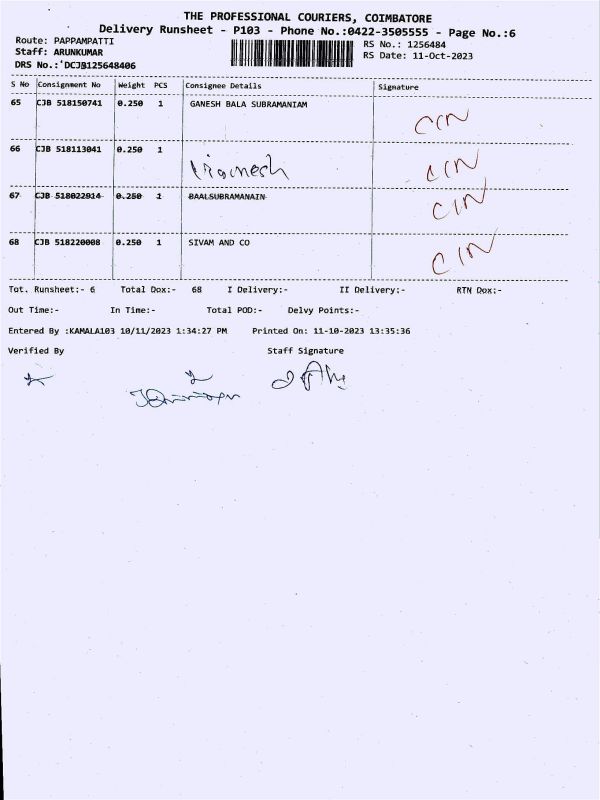 THE PROFESSIONAL COURIERS, COIMBATORE
Delivery Runsheet - P103 - Phone No.:0422-3505555 - Page No.:6
Route: PAPPAMPATTI RS No.: 1256484
Staff: ARUNKUMAR RS Date: 11-Oct-2023
DRS No.:'DCJB125648406
S No Consignment No Weight PCS Consignee Details Signature
65 CJB 518150741 0.250 1 GANESH BALA SUBRAMANIAM
CIN
66 CJB 518113041 0.250 1
Vignesh CIN
67 CJB 518022914 0.250 1 BAALSUBRAMANAIN
CIN
68 CJB 518220008 0.250 1 SIVAM AND CO
CIN
Tot. Runsheet:- 6 Total Dox:- 68 I Delivery:- II Delivery:- RTN Dox:-
Out Time:- In Time:- Total POD:- Delvy Points:-
Entered By :KAMALA103 10/11/2023 1:34:27 PM Printed On: 11-10-2023 13:35:36
Verified By Staff Signature